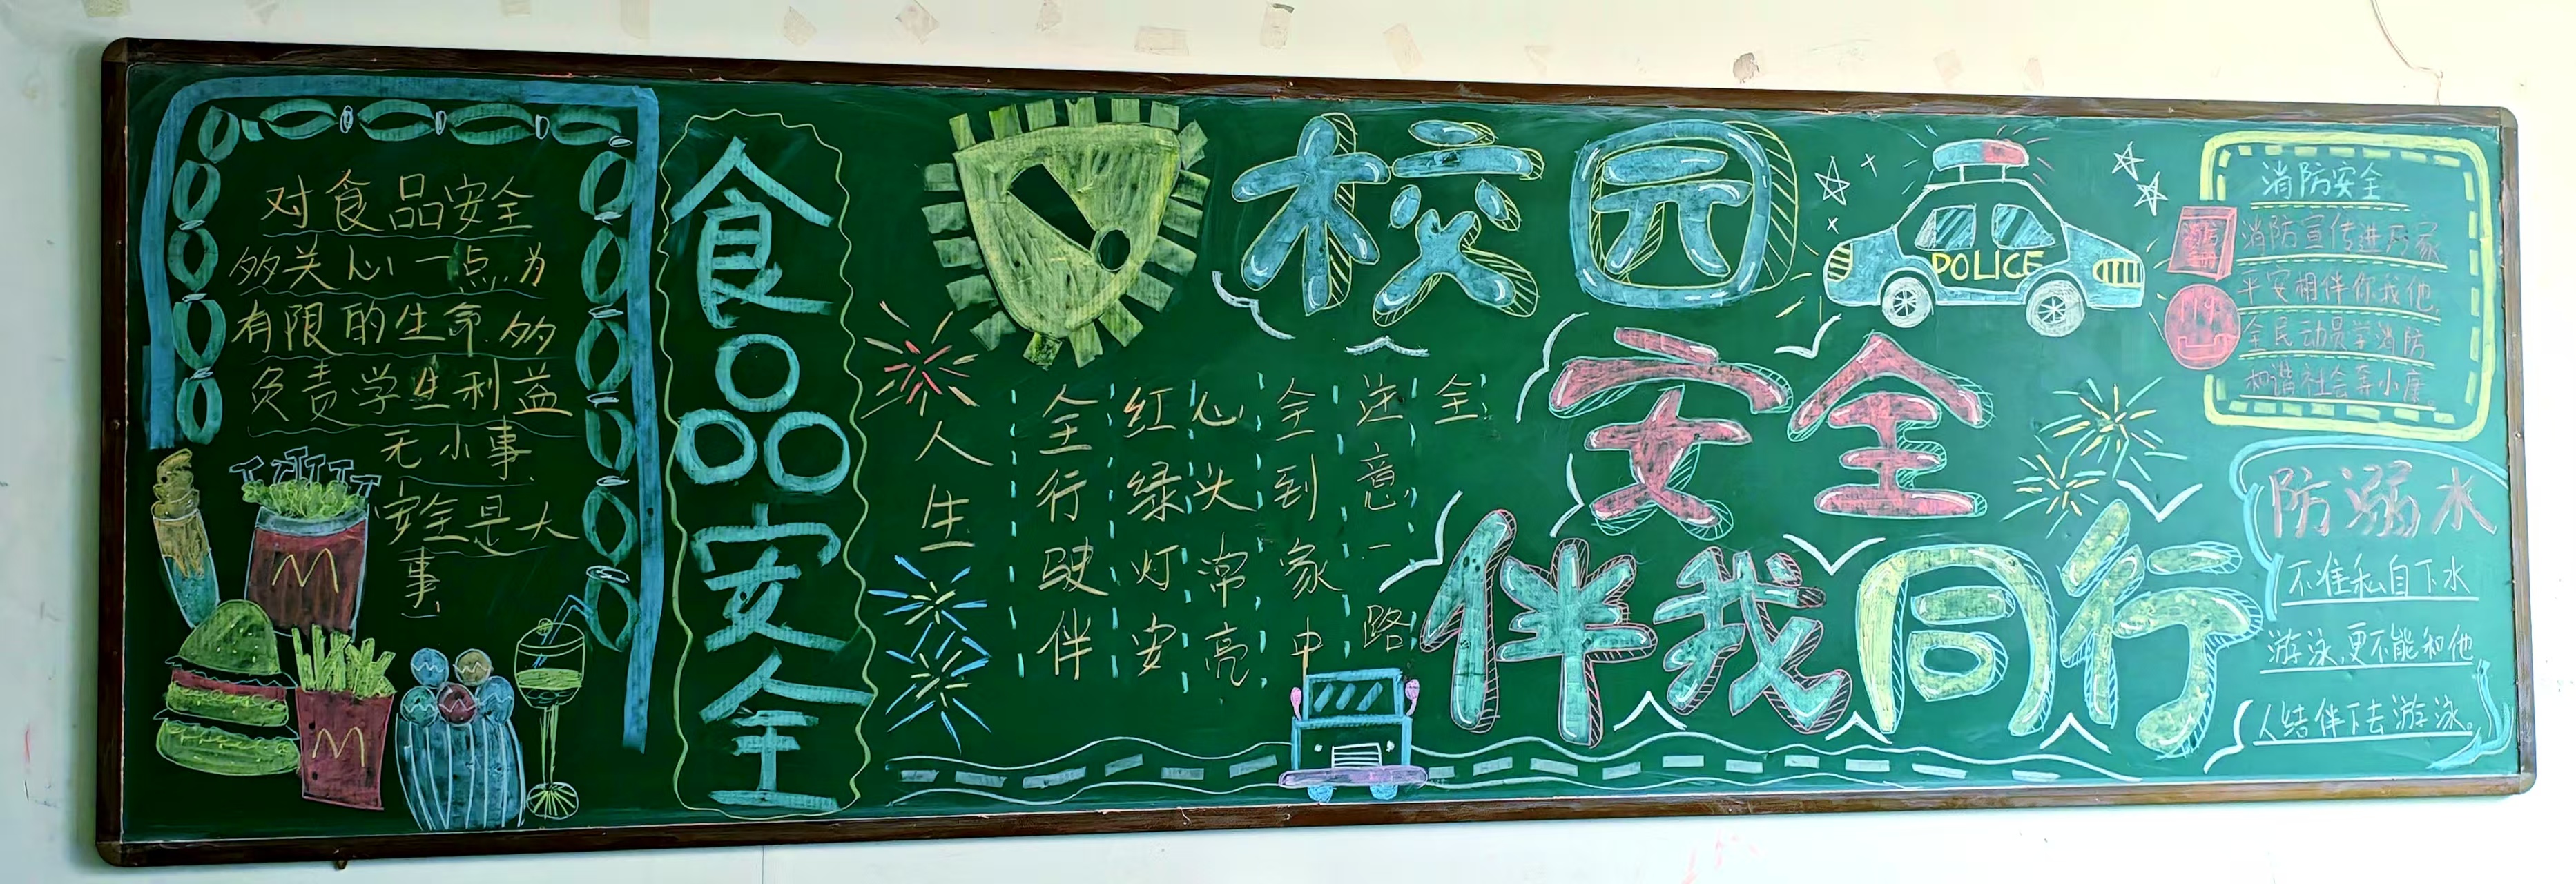 对食品安全
多关心一点.为
有限的生命.多
负责学生利益
无小事
安全是大
事
M
M
食品安全
校园
安全
伴我同行
POLICE
全
注意一路
全到家中
心头常亮
红绿灯安
全行驶伴
人生
消防安全
消防宣传进万家
平安相伴你我他
全民动员学消防
和谐社会奔小康。
119
防溺水
不准私自下水
游泳,更不能和他
人结伴下去游泳。